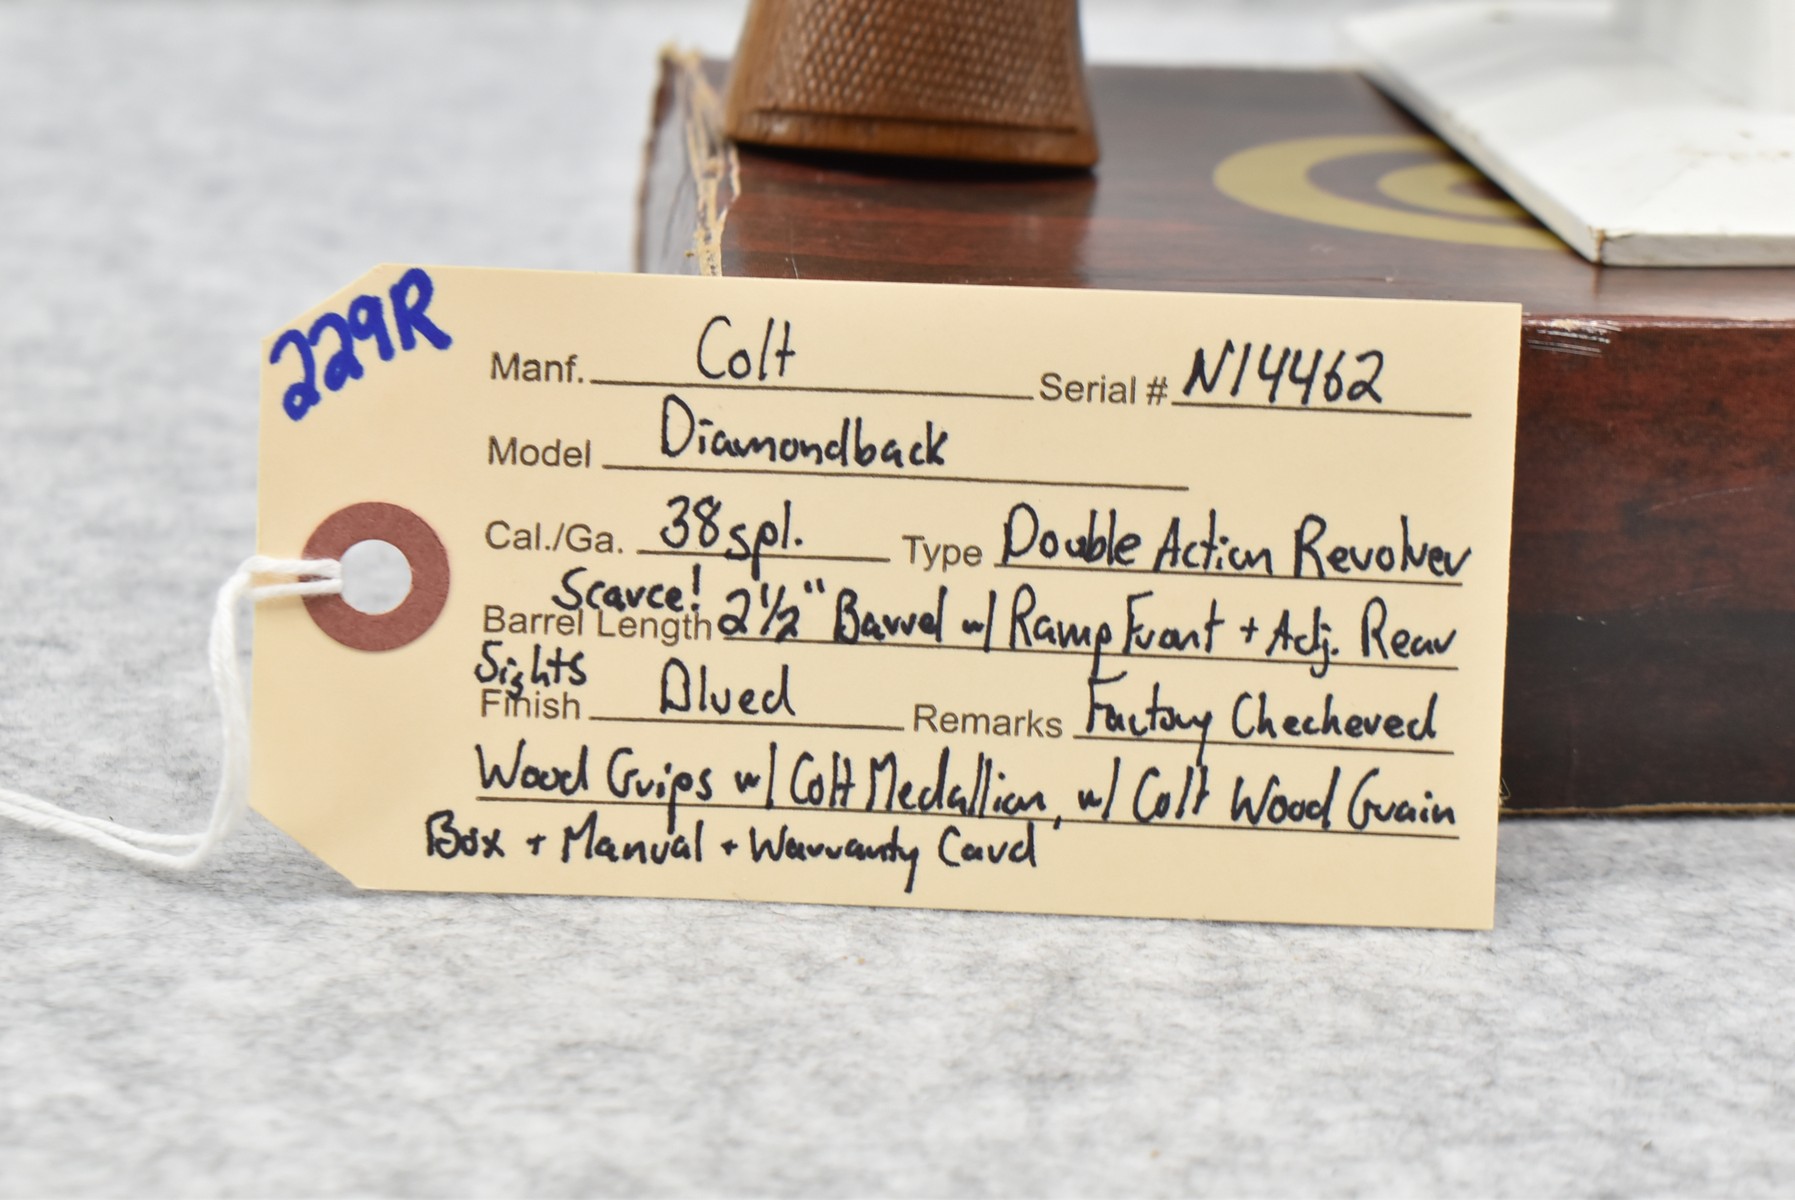 229R
Manf. Colt Serial # N14462
Model Diamondback
Cal./Ga. 38 spl. Type Double Action Revolver
Scarce!
Barrel Length 2 1/2" Barrel w/ Ramp Front + Adj. Rear
Sights
Finish Blued Remarks Factory Checkered
Wood Grips w/ Colt Medallion, w/ Colt Wood Grain
Box + Manual + Warranty Card